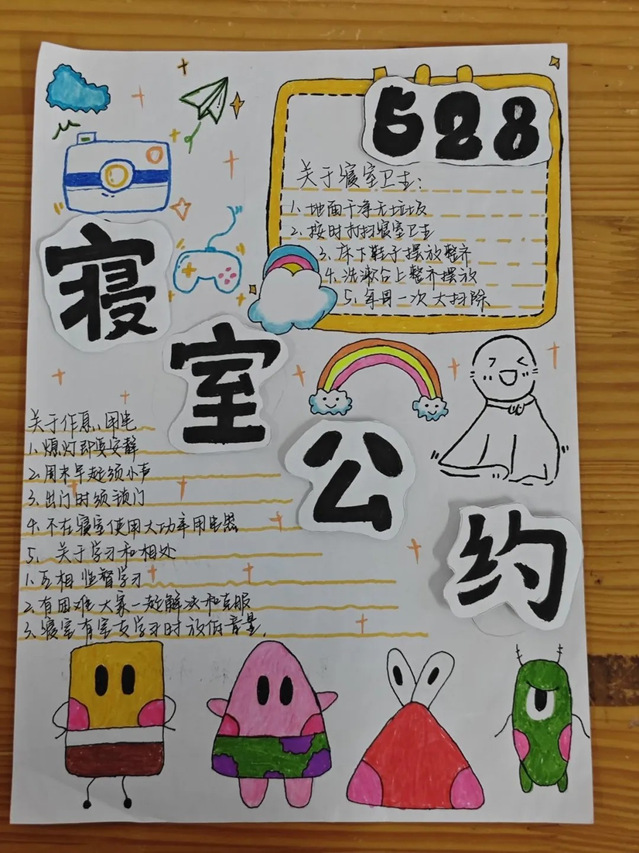 528
关于寝室卫生:
1、地面干净无垃圾
2、按时打扫寝室卫生
3、床下鞋子摆放整齐
4、洗漱台上整齐摆放
5、每周一次大扫除
寝室公约
关于作息、用电
1、熄灯即要安静
2、周末早起须小声
3、出门时须锁门
4、不在寝室使用大功率用电器
5、关于学习和相处
1、互相监督学习
2、有困难大家一起解决和克服
3、寝室有室友学习时放低音量.